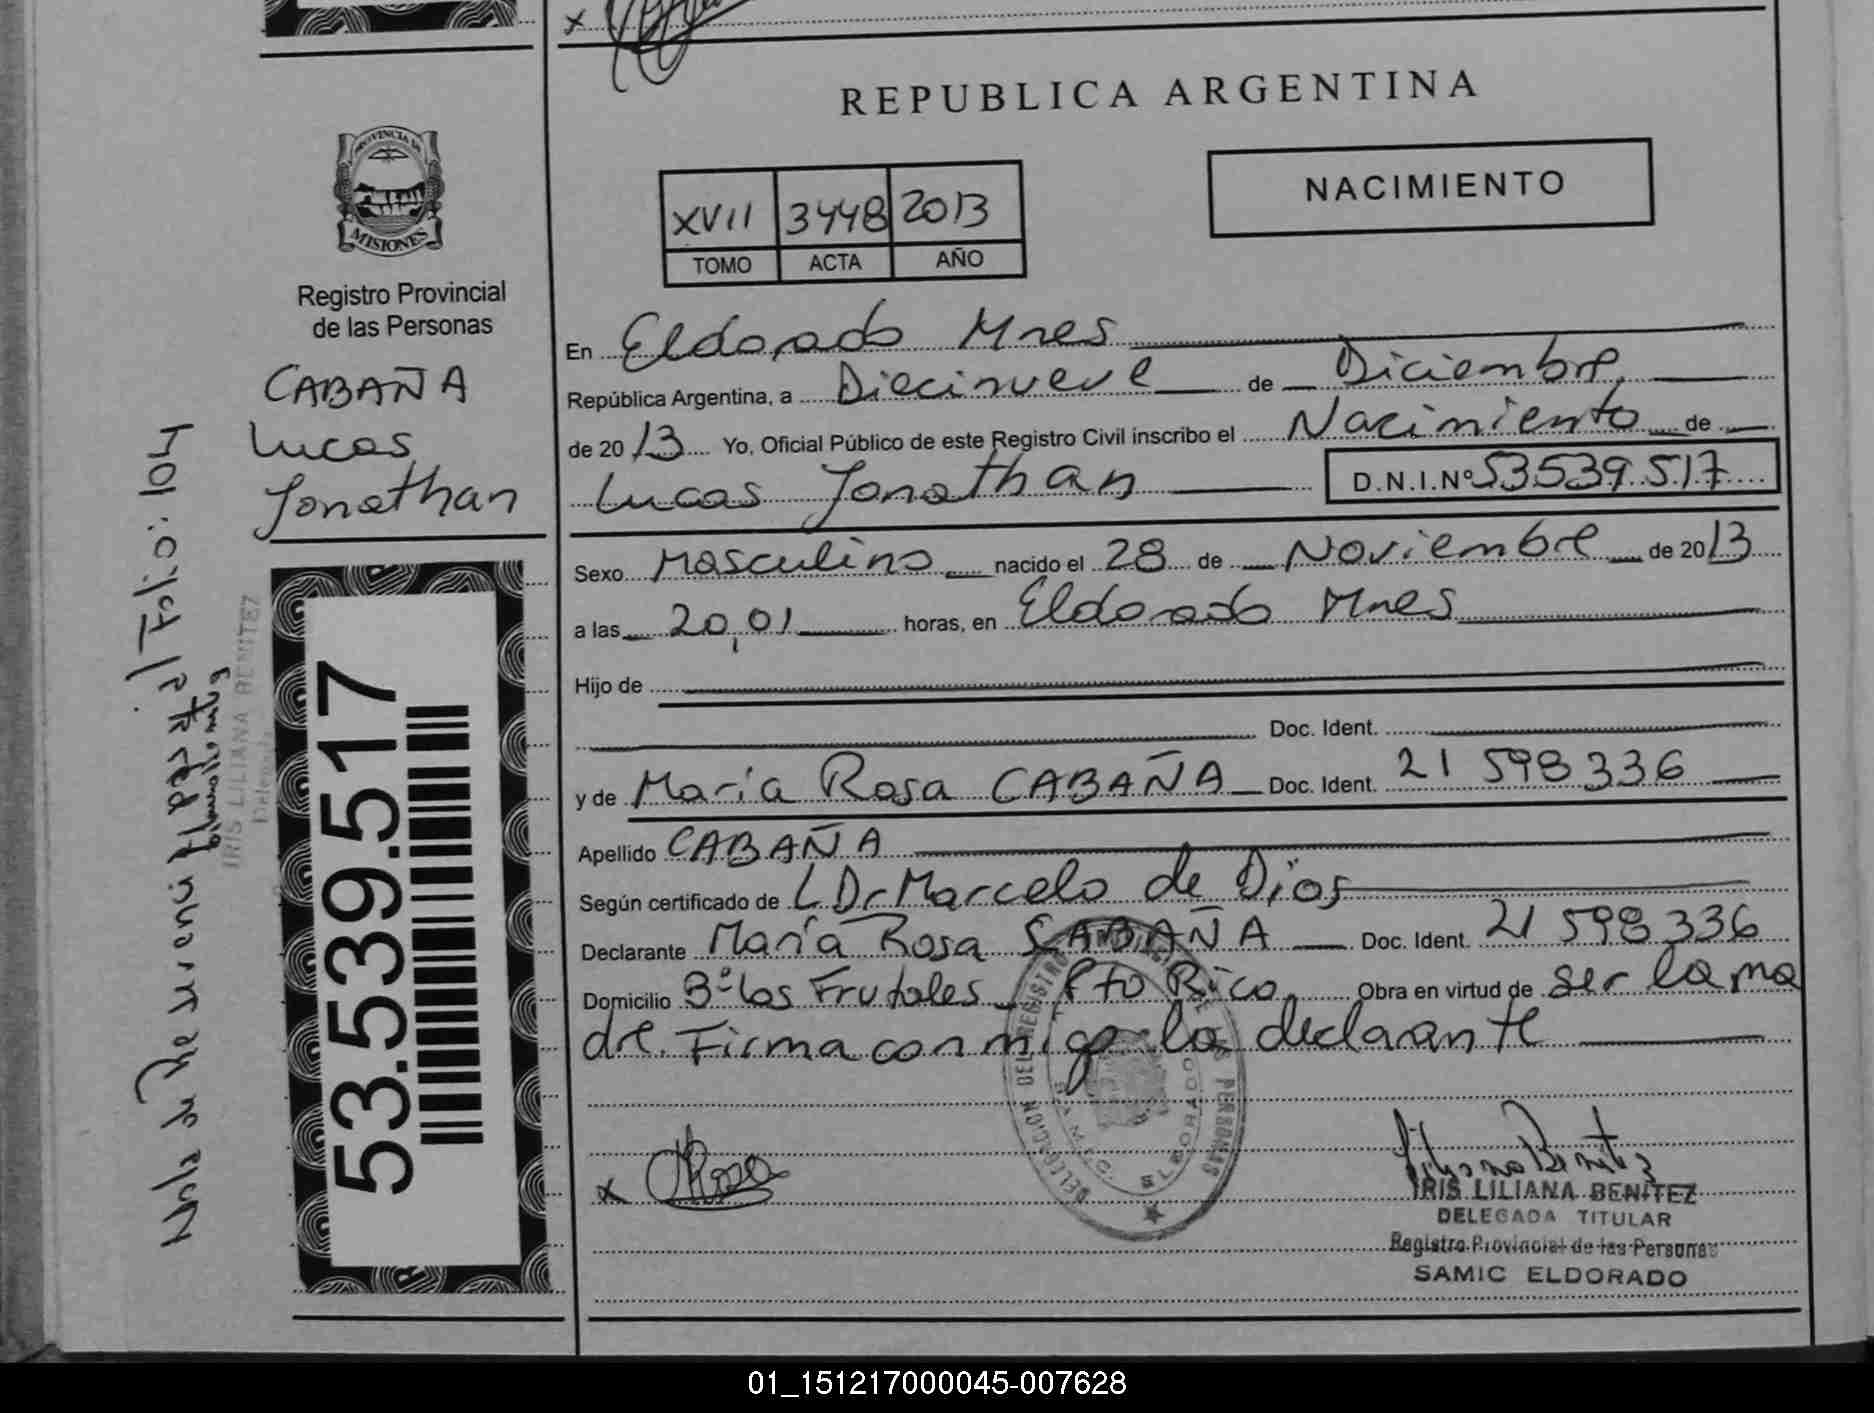 REPUBLICA ARGENTINA
NACIMIENTO
XVII 3448 2013
TOMO ACTA AÑO
PROVINCIA DE
MISIONES
Registro Provincial
de las Personas
CABAÑA
Lucas
Jonathan
53.539.517
Nota de Referencia al Folio: 104
IRIS LILIANA BENITEZ
En Eldorado Mnes
República Argentina, a Diecinueve de Diciembre
de 2013 Yo, Oficial Público de este Registro Civil inscribo el Nacimiento de
Lucas Jonathan D.N.I.Nº 53539517
Sexo Masculino nacido el 28 de Noviembre de 2013
a las 20,01 horas, en Eldorado Mnes
Hijo de
Doc. Ident.
y de María Rosa CABAÑA Doc. Ident. 21 598336
Apellido CABAÑA
Según certificado de L Dr Marcelo de Dios
Declarante María Rosa CABAÑA Doc. Ident. 21 598336
Domicilio Bº los Frutales Pto Rico Obra en virtud de ser la ma
dre. Firma conmigo la declarante
DELEGACION DEL REGISTRO DE LAS PERSONAS
S.A.M.I.C. ELDORADO
x Rosa
Liliana Benitez
IRIS LILIANA BENITEZ
DELEGADA TITULAR
Registro Provincial de las Personas
SAMIC ELDORADO
01_151217000045-007628